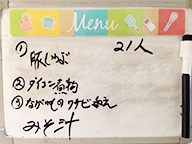 Menu
① 21人
豚しゃぶ
② ダイコン煮物
③ ながいものワサビ和え
みそ汁